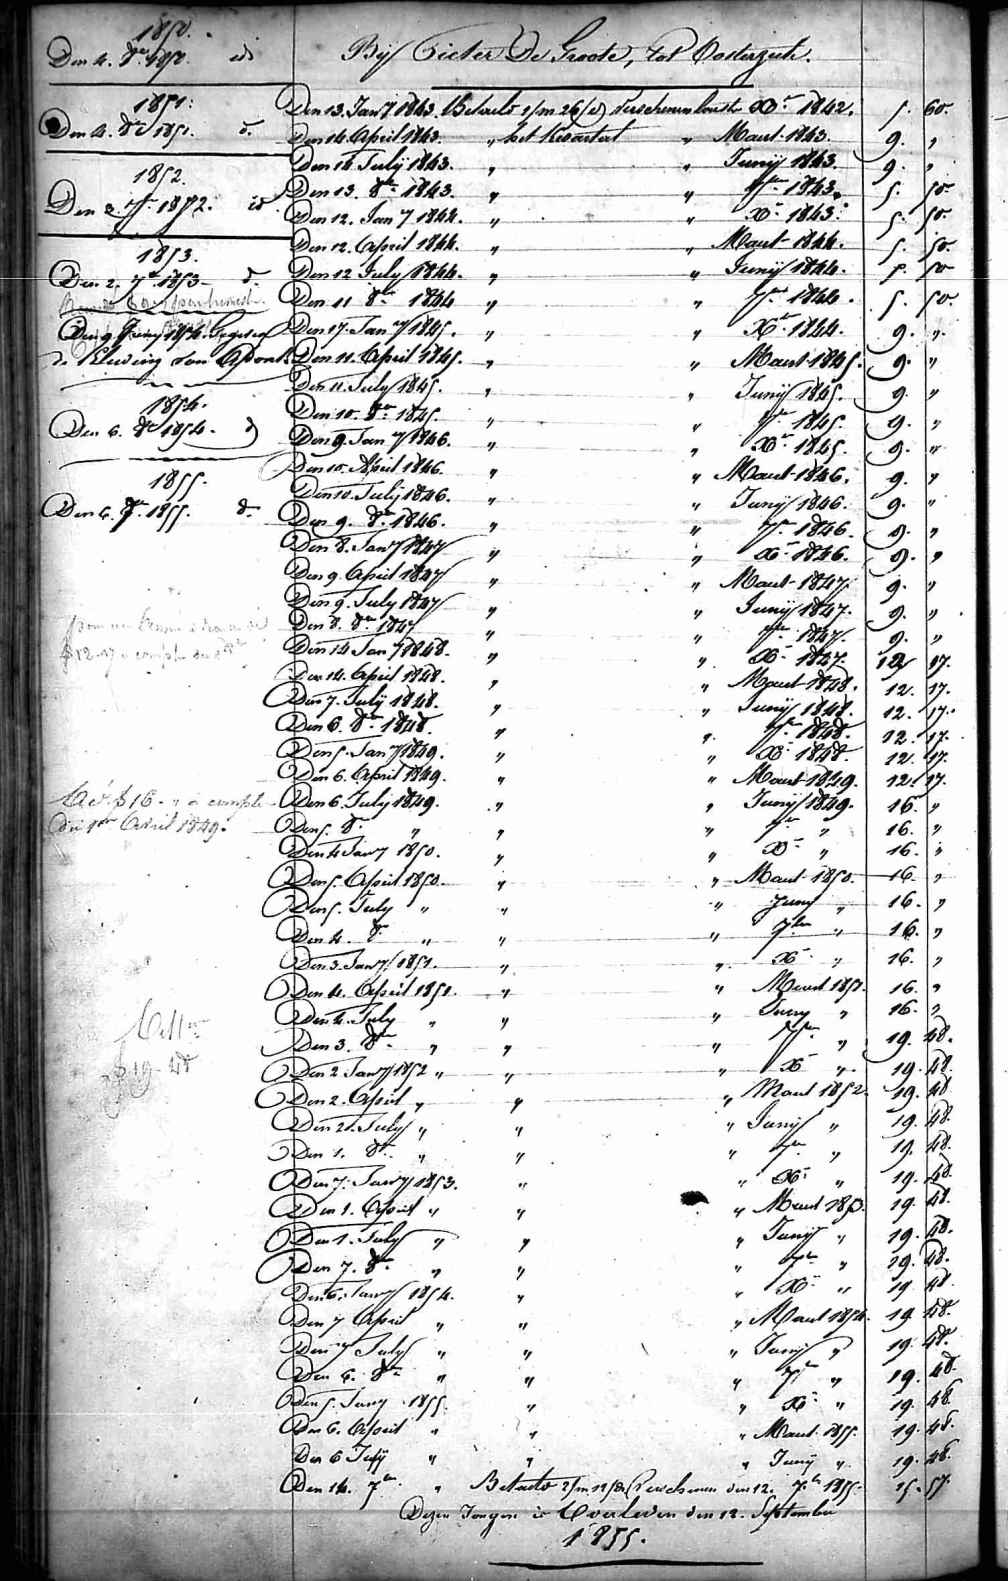 1850.
Den 4. 8br 1850. id
1851.
Den 4. 8br 1851. d.
1852.
Den 2. 7br 1852. id.
1853.
Den 2. 7br 1853 d.
Den 9 Juny 1854.
1854.
Den 6. 8br 1854. d
1855.
Den 6. 7br 1855. d.
$12-17 a compte
$16 - " à compte
du 1er Avril 1849.
$19-48
Bij Pieter De Groote, tot Oosterzeele.
Den 13. Jany 1843. Betaelt 1/m 26/d verschenen Xbr 1842. 5. 60.
Den 14 April 1843. " het kwartael " Maert 1843. 9. "
Den 14 July 1843. " " Junij 1843. 9. "
Den 13. 8br 1843. " " 7br 1843. 5. 50.
Den 12. Jany 1844. " " Xbr 1843. 5. 50.
Den 12. April 1844. " " Maert 1844. 5. 50.
Den 12 July 1844. " " Junij 1844. 5. 50
Den 11 8br 1844 " " 7br 1844. 5. 50.
Den 17. Jany 1845. " " Xbr 1844. 9. "
Den 11. April 1845. " " Maert 1845. 9. "
Den 11. July 1845. " " Junij 1845. 9. "
Den 10. 8br 1845. " " 7br 1845. 9. "
Den 9. Jany 1846. " " Xbr 1845. 9. "
Den 10. April 1846. " " Maert 1846. 9. "
Den 10. July 1846. " " Junij 1846. 9. "
Den 9. 8br 1846. " " 7br 1846. 9. "
Den 8. Jany 1847 " " Xbr 1846. 9. "
Den 9. April 1847 " " Maert 1847. 9. "
Den 9. July 1847 " " Junij 1847. 9. "
Den 8. 8br 1847 " " 7br 1847. 9. "
Den 14 Jany 1848. " " Xbr 1847. 12 17.
Den 14. April 1848. " " Maert 1848. 12. 17.
Den 7. July 1848. " " Junij 1848. 12. 17.
Den 6. 8br 1848. " " 7br 1848. 12. 17.
Den 5. Jany 1849. " " Xbr 1848. 12. 17.
Den 6. April 1849. " " Maert 1849. 12. 17.
Den 6 July 1849. " " Junij 1849. 16. "
Den 5. 8br " " " 7br " 16. "
Den 4 Jany 1850. " " Xbr " 16. "
Den 5. April 1850. " " Maert 1850. 16. "
Den 5. July " " " Juny " 16. "
Den 4. 8br " " " 7ber " 16. "
Den 3. Jany 1851. " " Xbr " 16. "
Den 4. April 1851. " " Maert 1851. 16. "
Den 4. July " " " Juny " 16. "
Den 3. 8br " " " 7br " 19. 48.
Den 2 Jany 1852 " " " X " 19. 48.
Den 2. April " " " Maert 1852. 19. 48
Den 2. July " " " Junij " 19. 48.
Den 1. 8br " " " 7br " 19. 48.
Den 7. Jany 1853. " " Xbr " 19. 48.
Den 1. April " " " Maert 1853. 19. 48.
Den 1. July " " " Junij " 19. 48.
Den 7. 8br " " " 7br " 19. 48.
Den 6. Jany 1854. " " Xbr " 19 48.
Den 7 April " " " Maert 1854. 19 48.
Den 7 July " " " Junij " 19. 48.
Den 6. 8br " " " 7br " 19. 48.
Den 5. Jany 1855. " " Xbr " 19. 48
Den 6. April " " " Maert 1855. 19. 48.
Den 6 July " " " Junij " 19. 48.
Den 14. 7br " Betaelt 2/m 12/d Verschenen den 12. 7br 1855. 15. 57.
Dezen Jongen is Overleden den 12. September
1855.